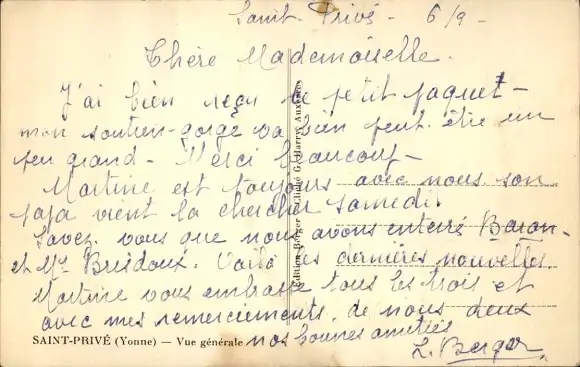 Saint-Privé - 6/9 -
Chère Mademoiselle.
J'ai bien reçu le petit paquet -
mon soutien-gorge va bien peut être un
peu grand - Merci beaucoup -
Martine est toujours avec nous son
papa vient la chercher samedi.
Savez vous que nous avons enterré Baron -
et Mr Bridoux. Voilà les dernières nouvelles.
Martine vous embrasse tous les trois et
avec mes remerciements, de nous deux
nos bonnes amitiés
L. Berger
SAINT-PRIVÉ (Yonne) — Vue générale
Edition Berger Cliché G. Harry, Auxerre